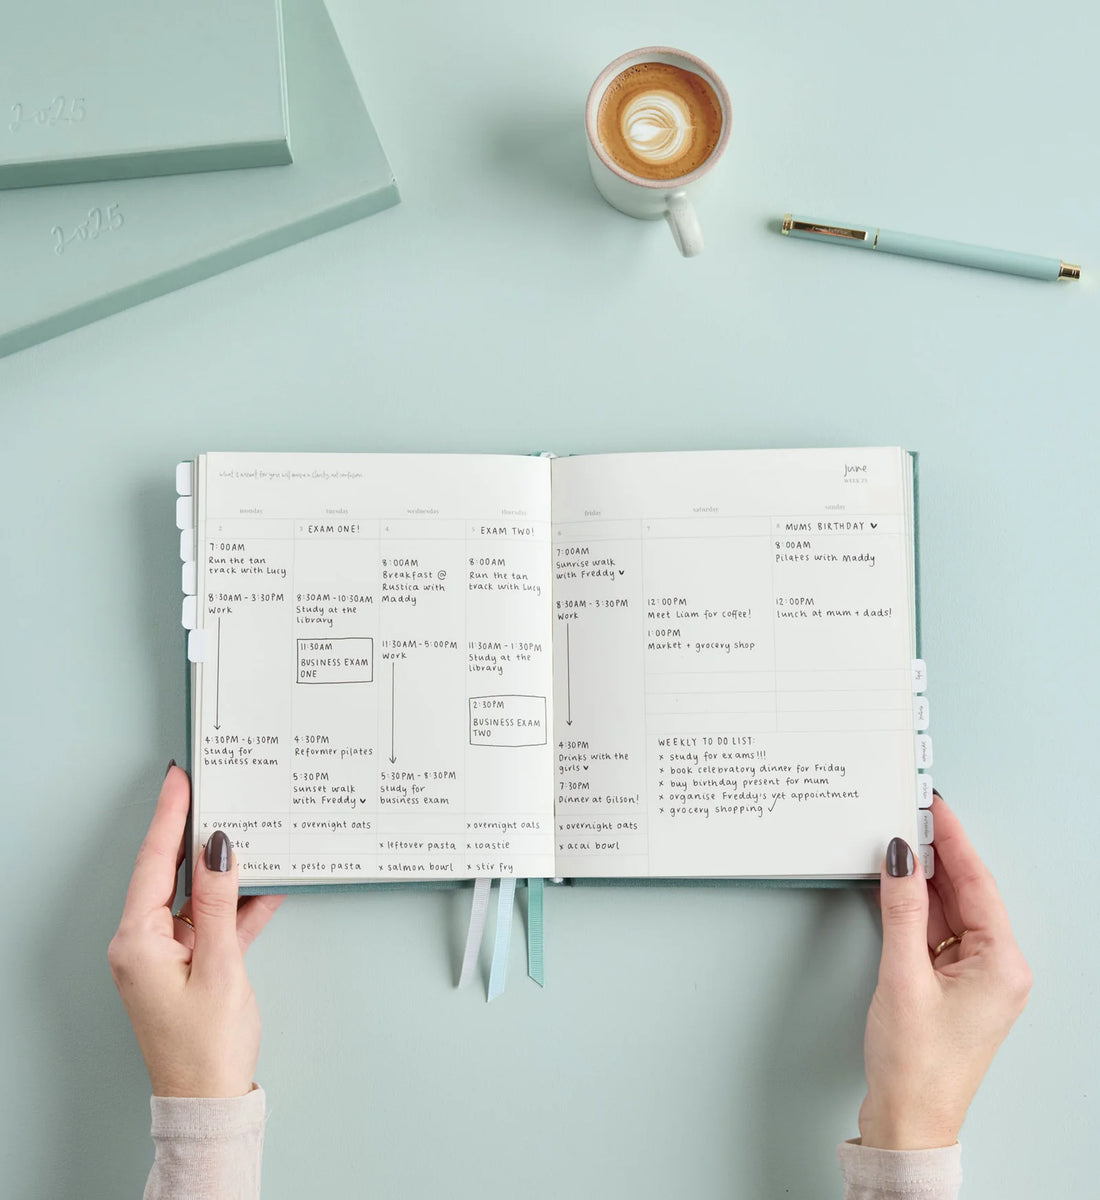 2025
2025
What is meant for you will arrive in clarity, not confusion
june
WEEK 23
monday
2
7:00AM
Run the tan
track with Lucy
8:30AM - 3:30PM
Work
4:30PM - 6:30PM
Study for
business exam
x overnight oats
chicken
tuesday
3 EXAM ONE!
8:30AM - 10:30AM
Study at the
library
11:30AM
BUSINESS EXAM
ONE
4:30PM
Reformer pilates
5:30PM
Sunset walk
with Freddy ♥
x overnight oats
x pesto pasta
wednesday
4
8:00AM
Breakfast @
Rustica with
Maddy
11:30AM - 5:00PM
Work
5:30PM - 8:30PM
Study for
business exam
x leftover pasta
x salmon bowl
thursday
5 EXAM TWO!
8:00AM
Run the tan
track with Lucy
11:30AM - 1:30PM
Study at the
library
2:30PM
BUSINESS EXAM
TWO
x overnight oats
x toastie
x stir fry
friday
6
7:00AM
Sunrise walk
with Freddy ♥
8:30AM - 3:30PM
Work
4:30PM
Drinks with the
girls ♥
7:30PM
Dinner at Gilson!
x overnight oats
x acai bowl
saturday
7
12:00PM
Meet Liam for coffee!
1:00PM
Market + grocery shop
sunday
8 MUMS BIRTHDAY ♥
8:00AM
Pilates with Maddy
12:00PM
Lunch at mum + dads!
WEEKLY TO DO LIST:
x study for exams!!!
x book celebratory dinner for Friday
x buy birthday present for mum
x organise Freddy's vet appointment
x grocery shopping ✓